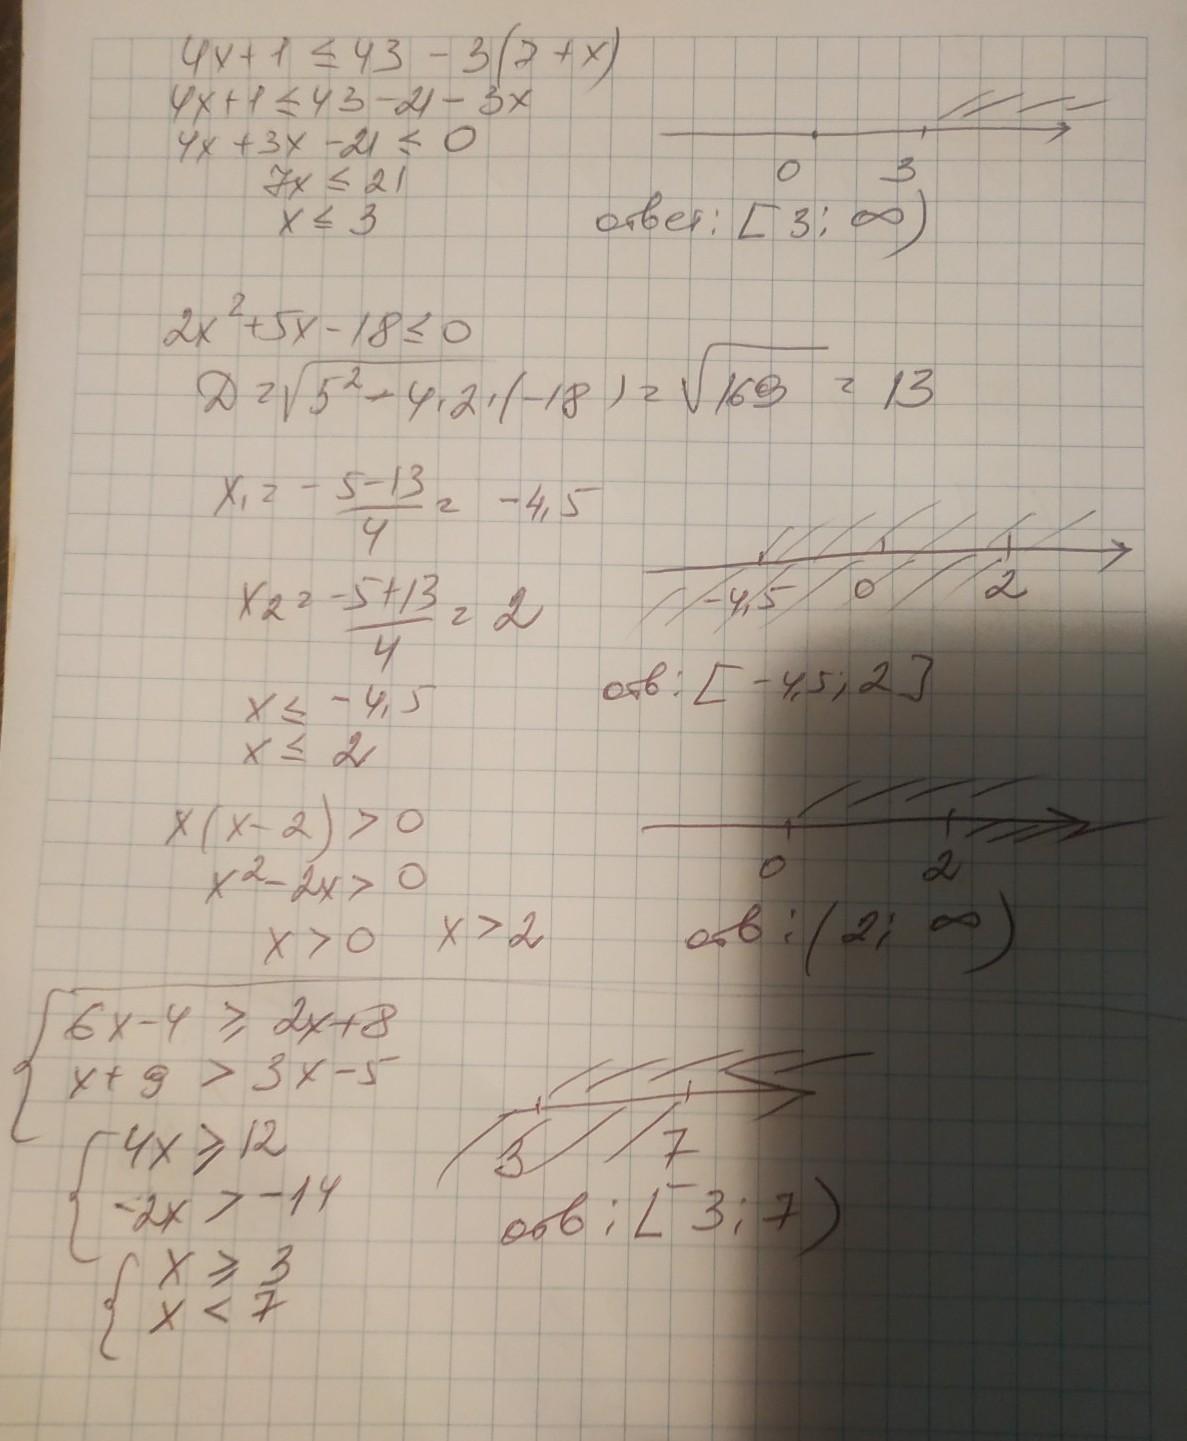 4x+1 ≤ 43 - 3(7+x)
4x+1 ≤ 43 -21 - 3x
4x +3x -21 ≤ 0
7x ≤ 21
x ≤ 3
0 3
ответ: [3; ∞)
2x²+5x-18 ≤ 0
D = √5² - 4·2·(-18) = √169 = 13
x₁ = -5-13/4 = -4,5
x₂ = -5+13/4 = 2
-4,5 0 2
x ≤ -4,5
x ≤ 2
отв: [-4,5; 2]
x(x-2) > 0
x²-2x > 0
x > 0 x > 2
0 2
отв: (2; ∞)
6x-4 ≥ 2x+8
x+9 > 3x-5
4x ≥ 12
-2x > -14
x ≥ 3
x < 7
3 7
отв: [3; 7)